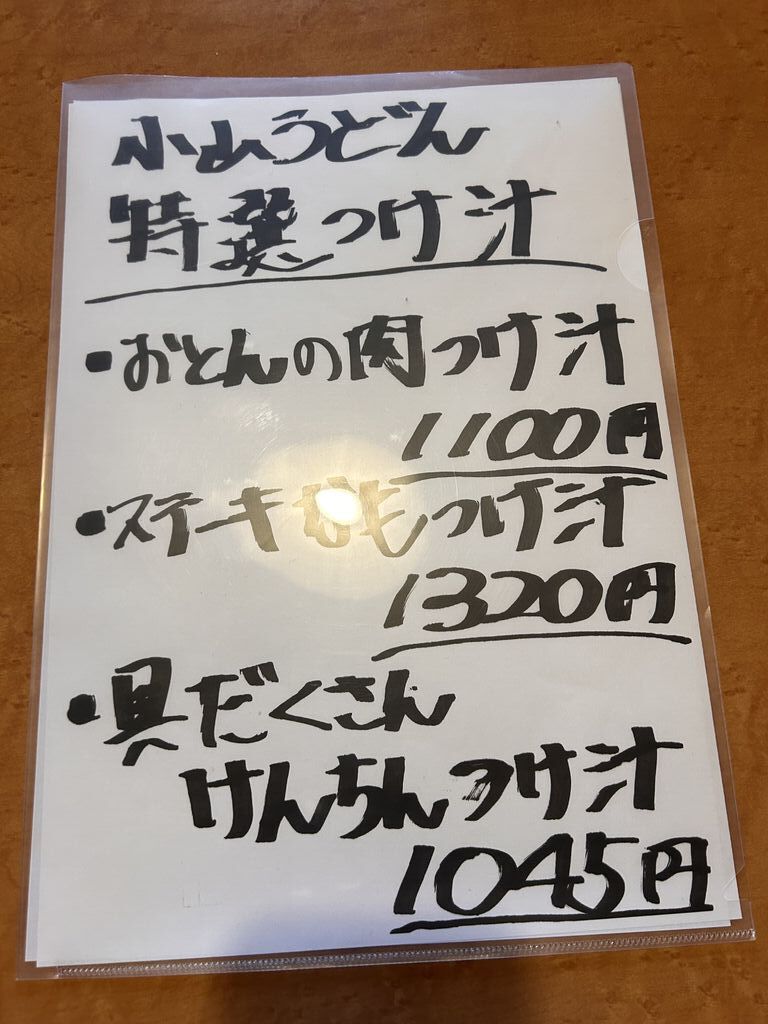 小山うどん
特選つけ汁
・おとんの肉つけ汁
1100円
・ステーキなもつけ汁
1320円
・具だくさん
けんちんつけ汁
1045円